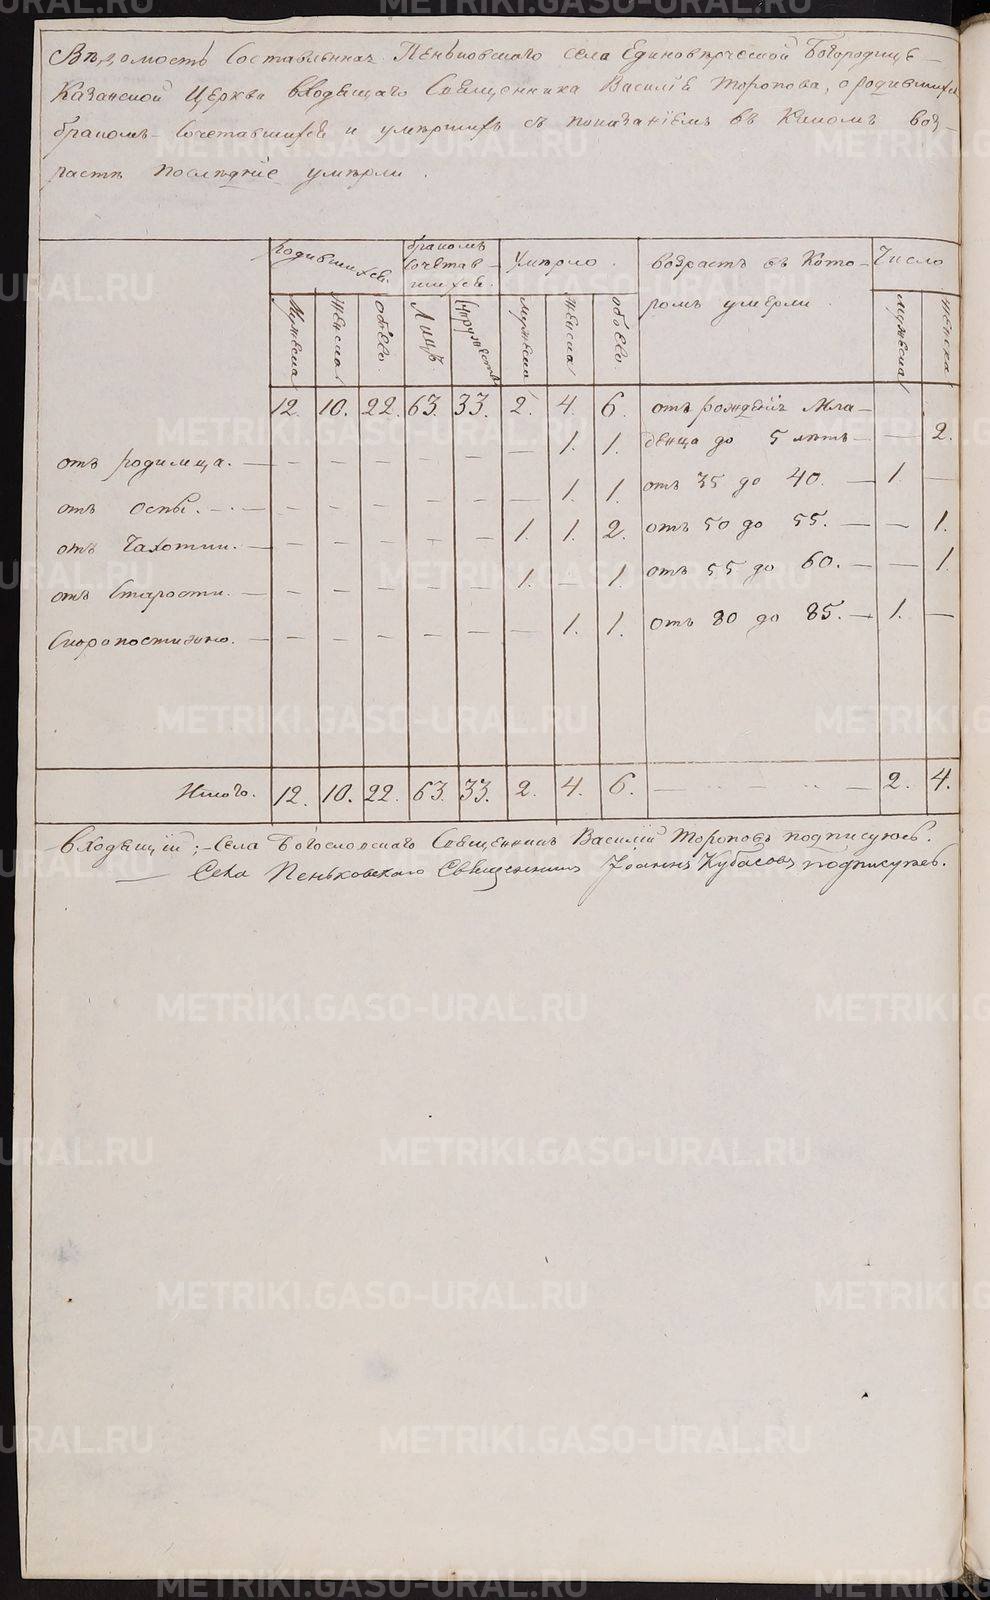 Вѣдомость Составленная Пеньковскаго села Единовѣрческой Богородице –
Казанской Церкви входящаго Священника Василія Торопова, о родившихся
бракомъ – Сочетавшихся и умѣршихъ съ показаніемъ въ Какомъ воз –
растѣ Послѣдніе умѣрли .
родившихся.
бракомъ
Сочетав –
шихся.
Умѣрло .
возрастъ въ Кото –
ромъ умерли
Число
Мужеска
Женска
обоего.
Лицъ
Супружествъ
Мужеска
Женска
обоего.
Мужеска
Женска
12. 10. 22. 63. 33. 2. 4. 6. отъ рожденія Мла –
отъ родимца. — – – – – – — 1. 1. денца до 5 лѣтъ — — 2.
отъ Оспы. — – – – – – — 1. 1. отъ 35 до 40. — 1. —
отъ Чахотки. — – – – – – 1. 1. 2. отъ 50 до 55. — — 1.
отъ Старости. — – – – – – 1. – 1. отъ 55 до 60. — — 1.
Скоропостижно. — – – – – – — 1. 1. отъ 80 до 85. — 1. —
Итого. 12. 10. 22. 63. 33. 2. 4. 6. — 2. 4.
Входящій ;– Села Богословскаго Священникъ Василій Тороповъ подписуюсь.
Села Пеньковскаго Священникъ Іоаннъ Кубасовъ подписуюсь.
METRIKI.GASO-URAL.RU